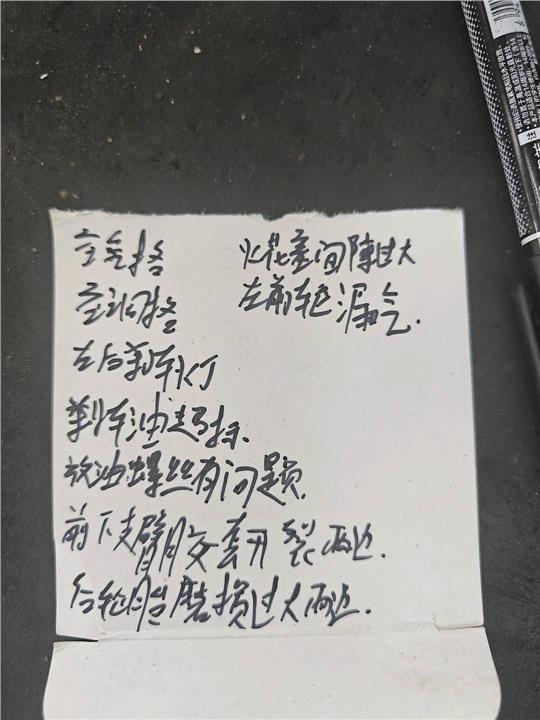 空气格
空调格
左后刹车灯
刹车油超标.
放油螺丝有问题.
前下支臂胶套开裂两边.
后轮胎磨损过大两边.
火花塞间隙过大
左前轮漏气.